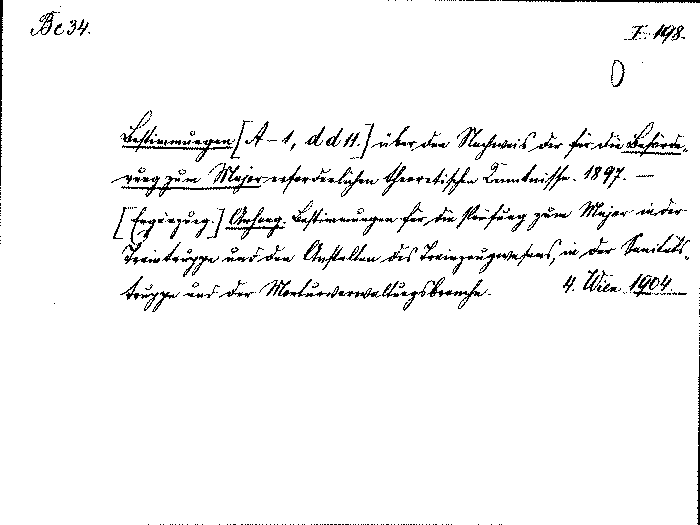 Be 34.
I-198.
Bestimmungen [A-1, d d 11.] über den Nachweis der für die Beförde-
rung zum Major erforderlichen theoretischen Kenntnisse. 1897. —
[Ergänzung.] Anhang. Bestimmungen für die Prüfung zum Major in der
Traintruppe und den Anstalten des Trainzeugwesens, in der Sanitäts-
truppe und der Monturverwaltungsbranche. 4. Wien 1904